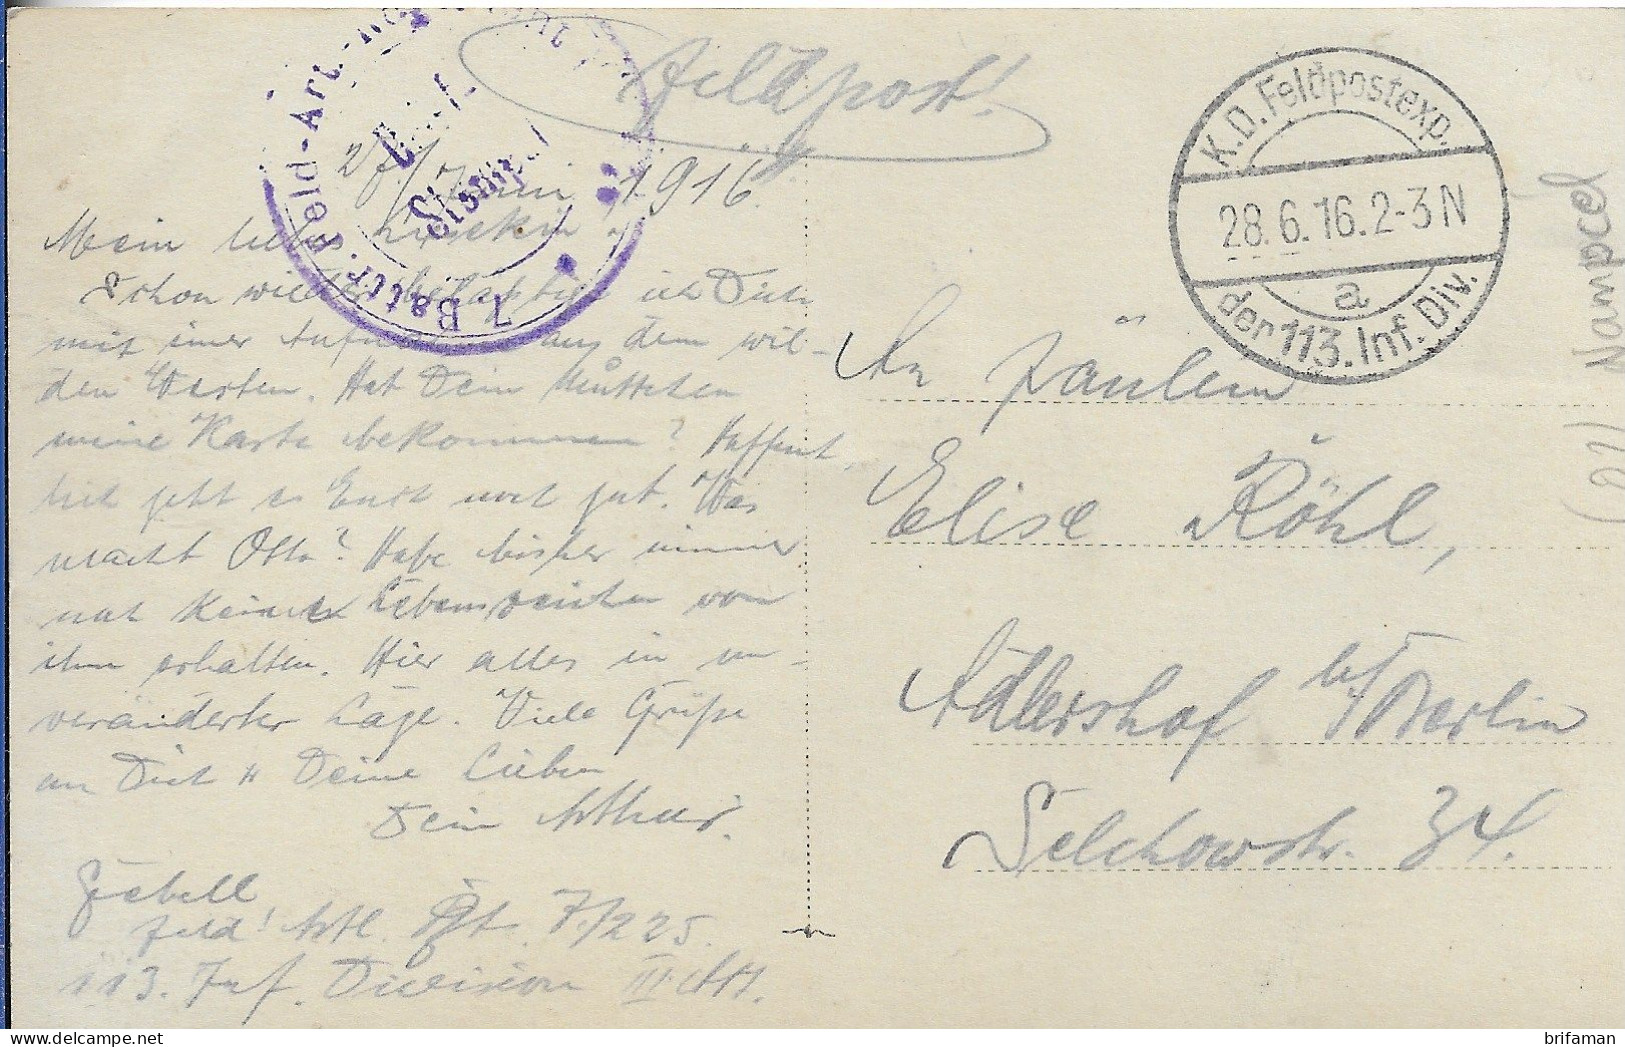 Feldpost!
27/Juni 1916.
Mein liebes
Schon wieder ich Dich
mit einer aus dem wil-
den Westen. Hat Dein Muttchen
meine Karte bekommen? Hoffent-
lich geht es Euch noch gut. Was
macht Otto? Habe bisher immer
noch keine Lebenszeichen von
ihm erhalten. Hier alles in un-
veränderter Lage. Viele Grüße
an Dich u Deine Lieben
Dein Arthur.
Feld! Artl. Rgt. 7./225.
113. Inf. Division III.
7. Battr. Feld-Art.-
K.D.Feldpostexp.
28.6.16.2-3N
a
der 113.Inf.Div.
An Fräulein
Elise Röhl,
Adlershof b/Berlin
Selchowstr. 34.
Nampcel
brifaman